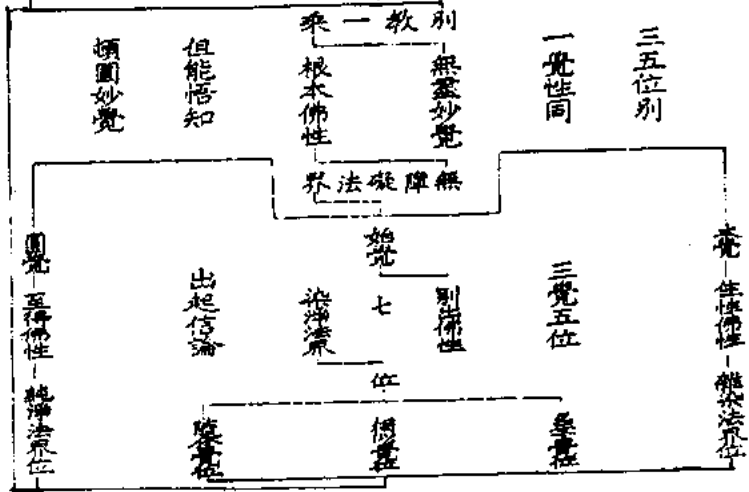 三五位別
一覺性同
別教一乘
無盡妙覺
根本佛性
但能悟知
頓圓妙覺
無障礙法界
本覺
佛性
雜染法界位
三覺五位
始覺
佛性
七位
染淨法界
出起信論
圓覺
至得佛性
純淨法界位